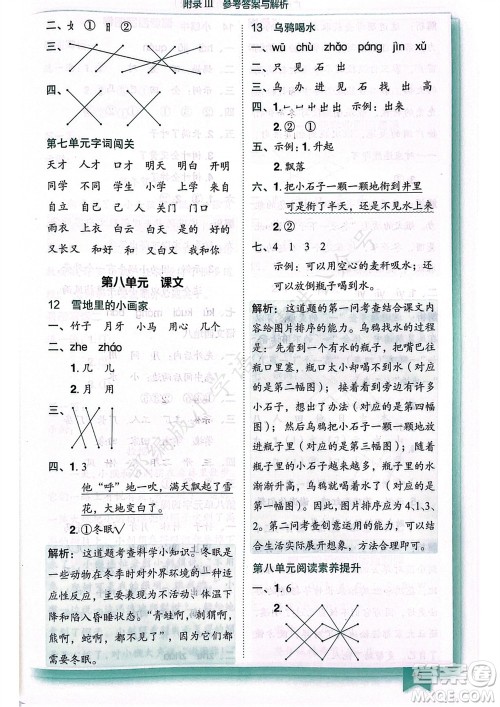 附录Ⅲ 参考答案与解析
二、女 ② ① ③
四、
第七单元字词闯关
天才 人才 口才 明天 明白 开明
同学 不同 学生 小学 上学
自己 己 人 关门 门口
雨衣 上衣 白云 天空 是的 好的
又长又 和 好 和 又高又 和 和
第八单元 课文
12 雪地里的小画家
一、竹子 月牙 小马 用心 几个
二、zhe zháo
1. 几 儿
2. 月 用
三、
四、1. 3
他“呼”地一吹，满天飘起了雪
花，大地变白了。
2. ①冬眠√
解析：这道题考查科学小知识：冬眠
是一些动物在冬季时对外界环境的一种
适应性反应，主要表现为体温的下降
和陷入昏睡状态。“青蛙啊，刺猬啊，
熊啊，蛇啊，都在冬眠。”它们都
需要冬眠。
13 乌鸦喝水
一、wū chù zhǎo páng jìn xǔ
二、只 见 石 出
三、乌 办 进 见 石 找 出 高
四、1. 示例：出来
2. ② ①
五、1. 示例：升起
2. 飘落
六、把小石子一颗一颗地衔到井里
可是衔了半天，还是不见水上来
七、4 1 3 2
示例：可以用空心的麦秆吸水，
也可以放倒瓶子喝水。
解析：这道题的第一问考查结合课文内
容给图片排序的能力。乌鸦喝水的过程
是：先看到一个水不多的瓶子，把嘴巴往
瓶口里塞，瓶口太小，喝不着水（对应
的是第二幅图）；接着看到旁边有许多
小石子，想到了办法（对应的是第四幅
图）；然后乌鸦把小石子一颗一颗地衔来
放到瓶子里（对应的是第三幅图）；最
后瓶子里的小石子越来越多，水面越来
越高，乌鸦就喝到水了（对应的是第一
幅图）。所以图片排序应为4、1、3、
2。第二问考查创意运用的能力，言之
有理即可。
第八单元阅读素养提升
一、1. 6
2.
答案圈